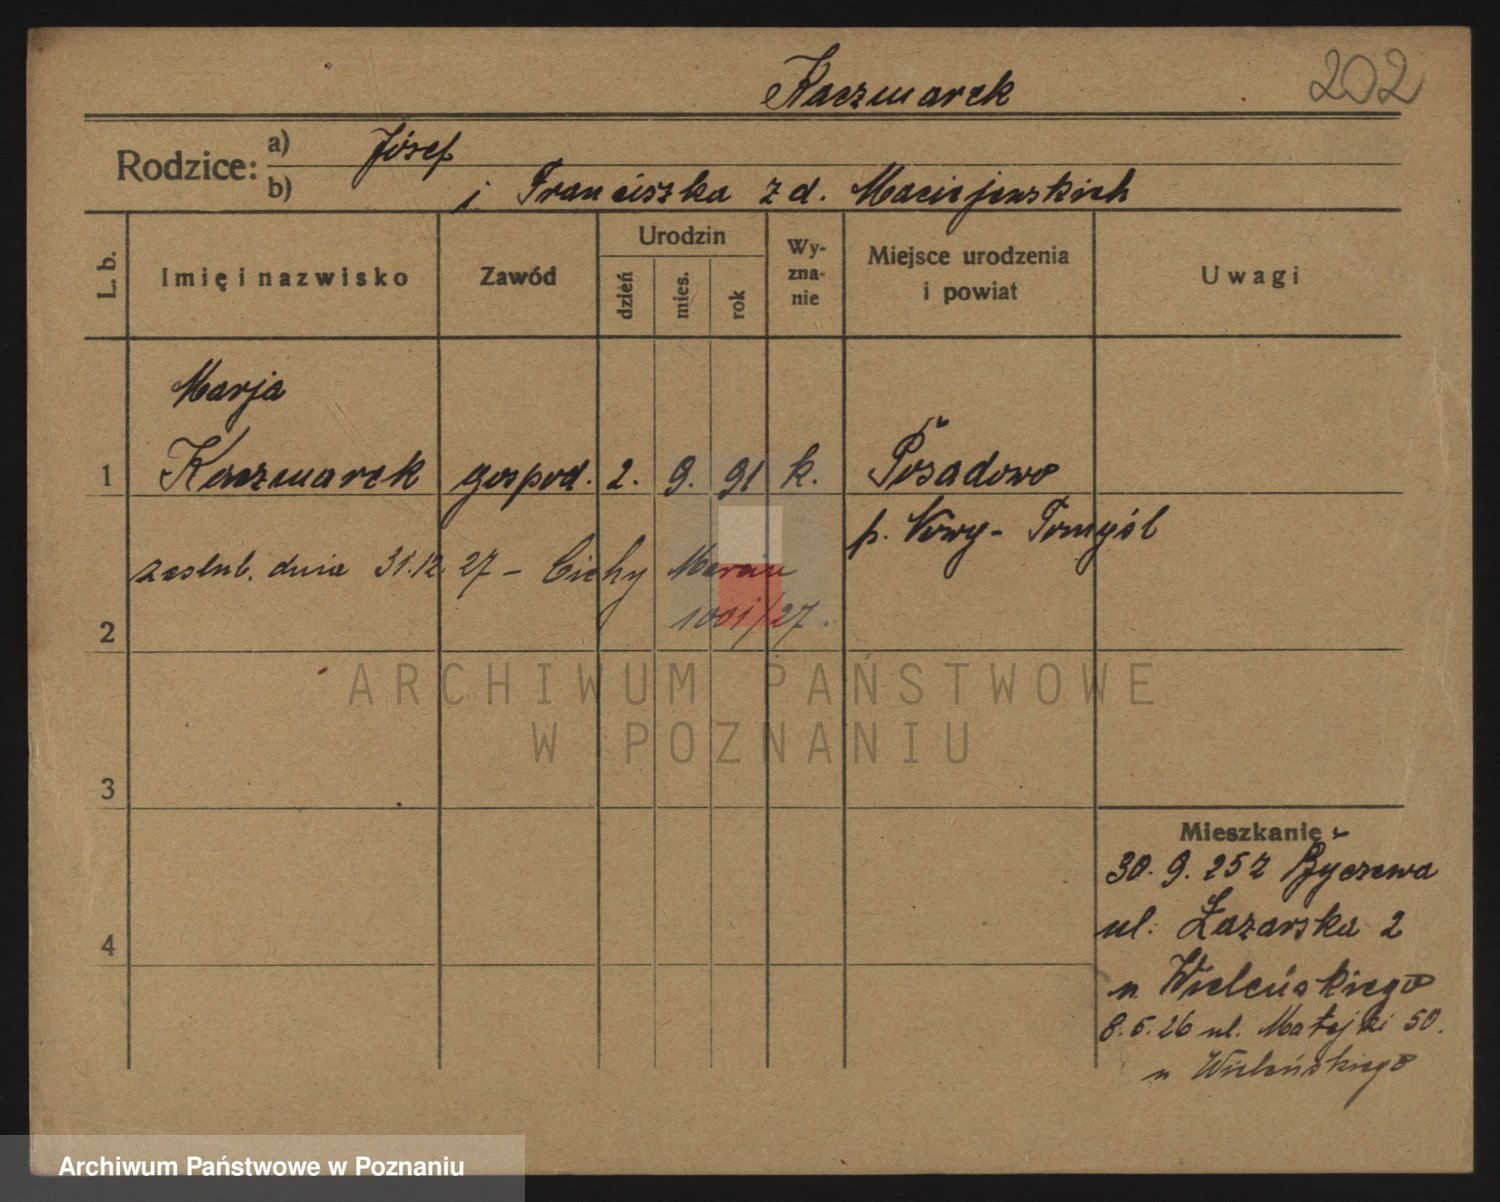 Kaczmarek
202
Rodzice: a) Józef
b) i Franciszka z d. Maciejewskich
L. b.
Imię i nazwisko
Zawód
Urodzin
dzień
mies.
rok
Wy-
zna-
nie
Miejsce urodzenia
i powiat
Uwagi
Marja
1 Kaczmarek gospod. 2. 9. 91 k. Posadowo
p. Nowy-Tomyśl
zaślub. dnia 31.12 27 - Cichy Marcin
1001/27.
2
ARCHIWUM PAŃSTWOWE
W POZNANIU
3
Mieszkanie
30. 9. 25 z Byczewa
ul. Łazarska 2
4
u Wieleńskiego
8.5.26 ul. Matejki 50.
u Wieleńskiego
Archiwum Państwowe w Poznaniu